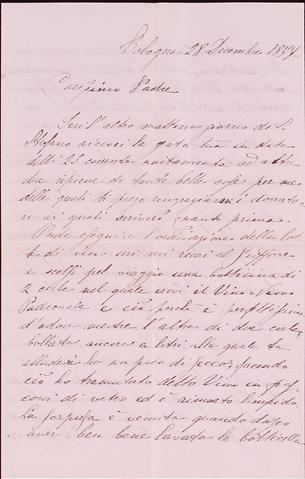 Bologna 28 Decembre 1877
Carissimo Padre
Ieri l'altro mattina giorno di S.
Stefano ricevei la grata tua in data
delli 25 corrente unitamente ad altre
due ripiene di tante belle cose per me
delle quali ti prego ringraziarne i donato-
ri ai quali scriverò quanto prima.
Onde eseguire l'ordinazione della bot-
te di vino ieri mi recai al
e scelsi pel viaggio una botticina di
2 corbe nel quale eravi il Vino nuovo
Padronale e ciò perchè è perfettissimo
d'odore mentre l'altra di due corbe,
bollata ancora a litri alla quale tu
alludevi ha un poco di secco, facendo
ciò ho tramutato detto Vino in fia-
sconi di vetro ed è rimasto limpido.
La sorpresa è venuta quando dopo
aver ben bene lavata la botticella